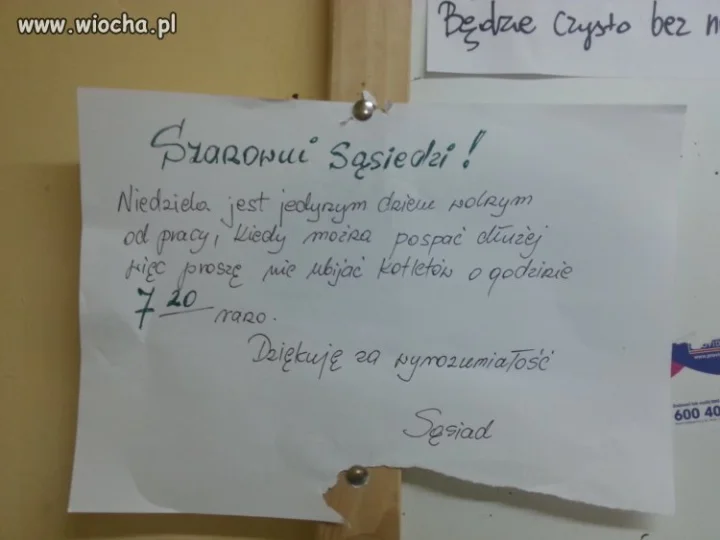 www.wiocha.pl
Będzie czysto bez
Szanowni Sąsiedzi!
Niedziela jest jedynym dniem wolnym
od pracy, kiedy można pospać dłużej
więc proszę nie ubijać kotletów o godzinie
7 20 rano.
Dziękuję za wyrozumiałość
Sąsiad
600 40